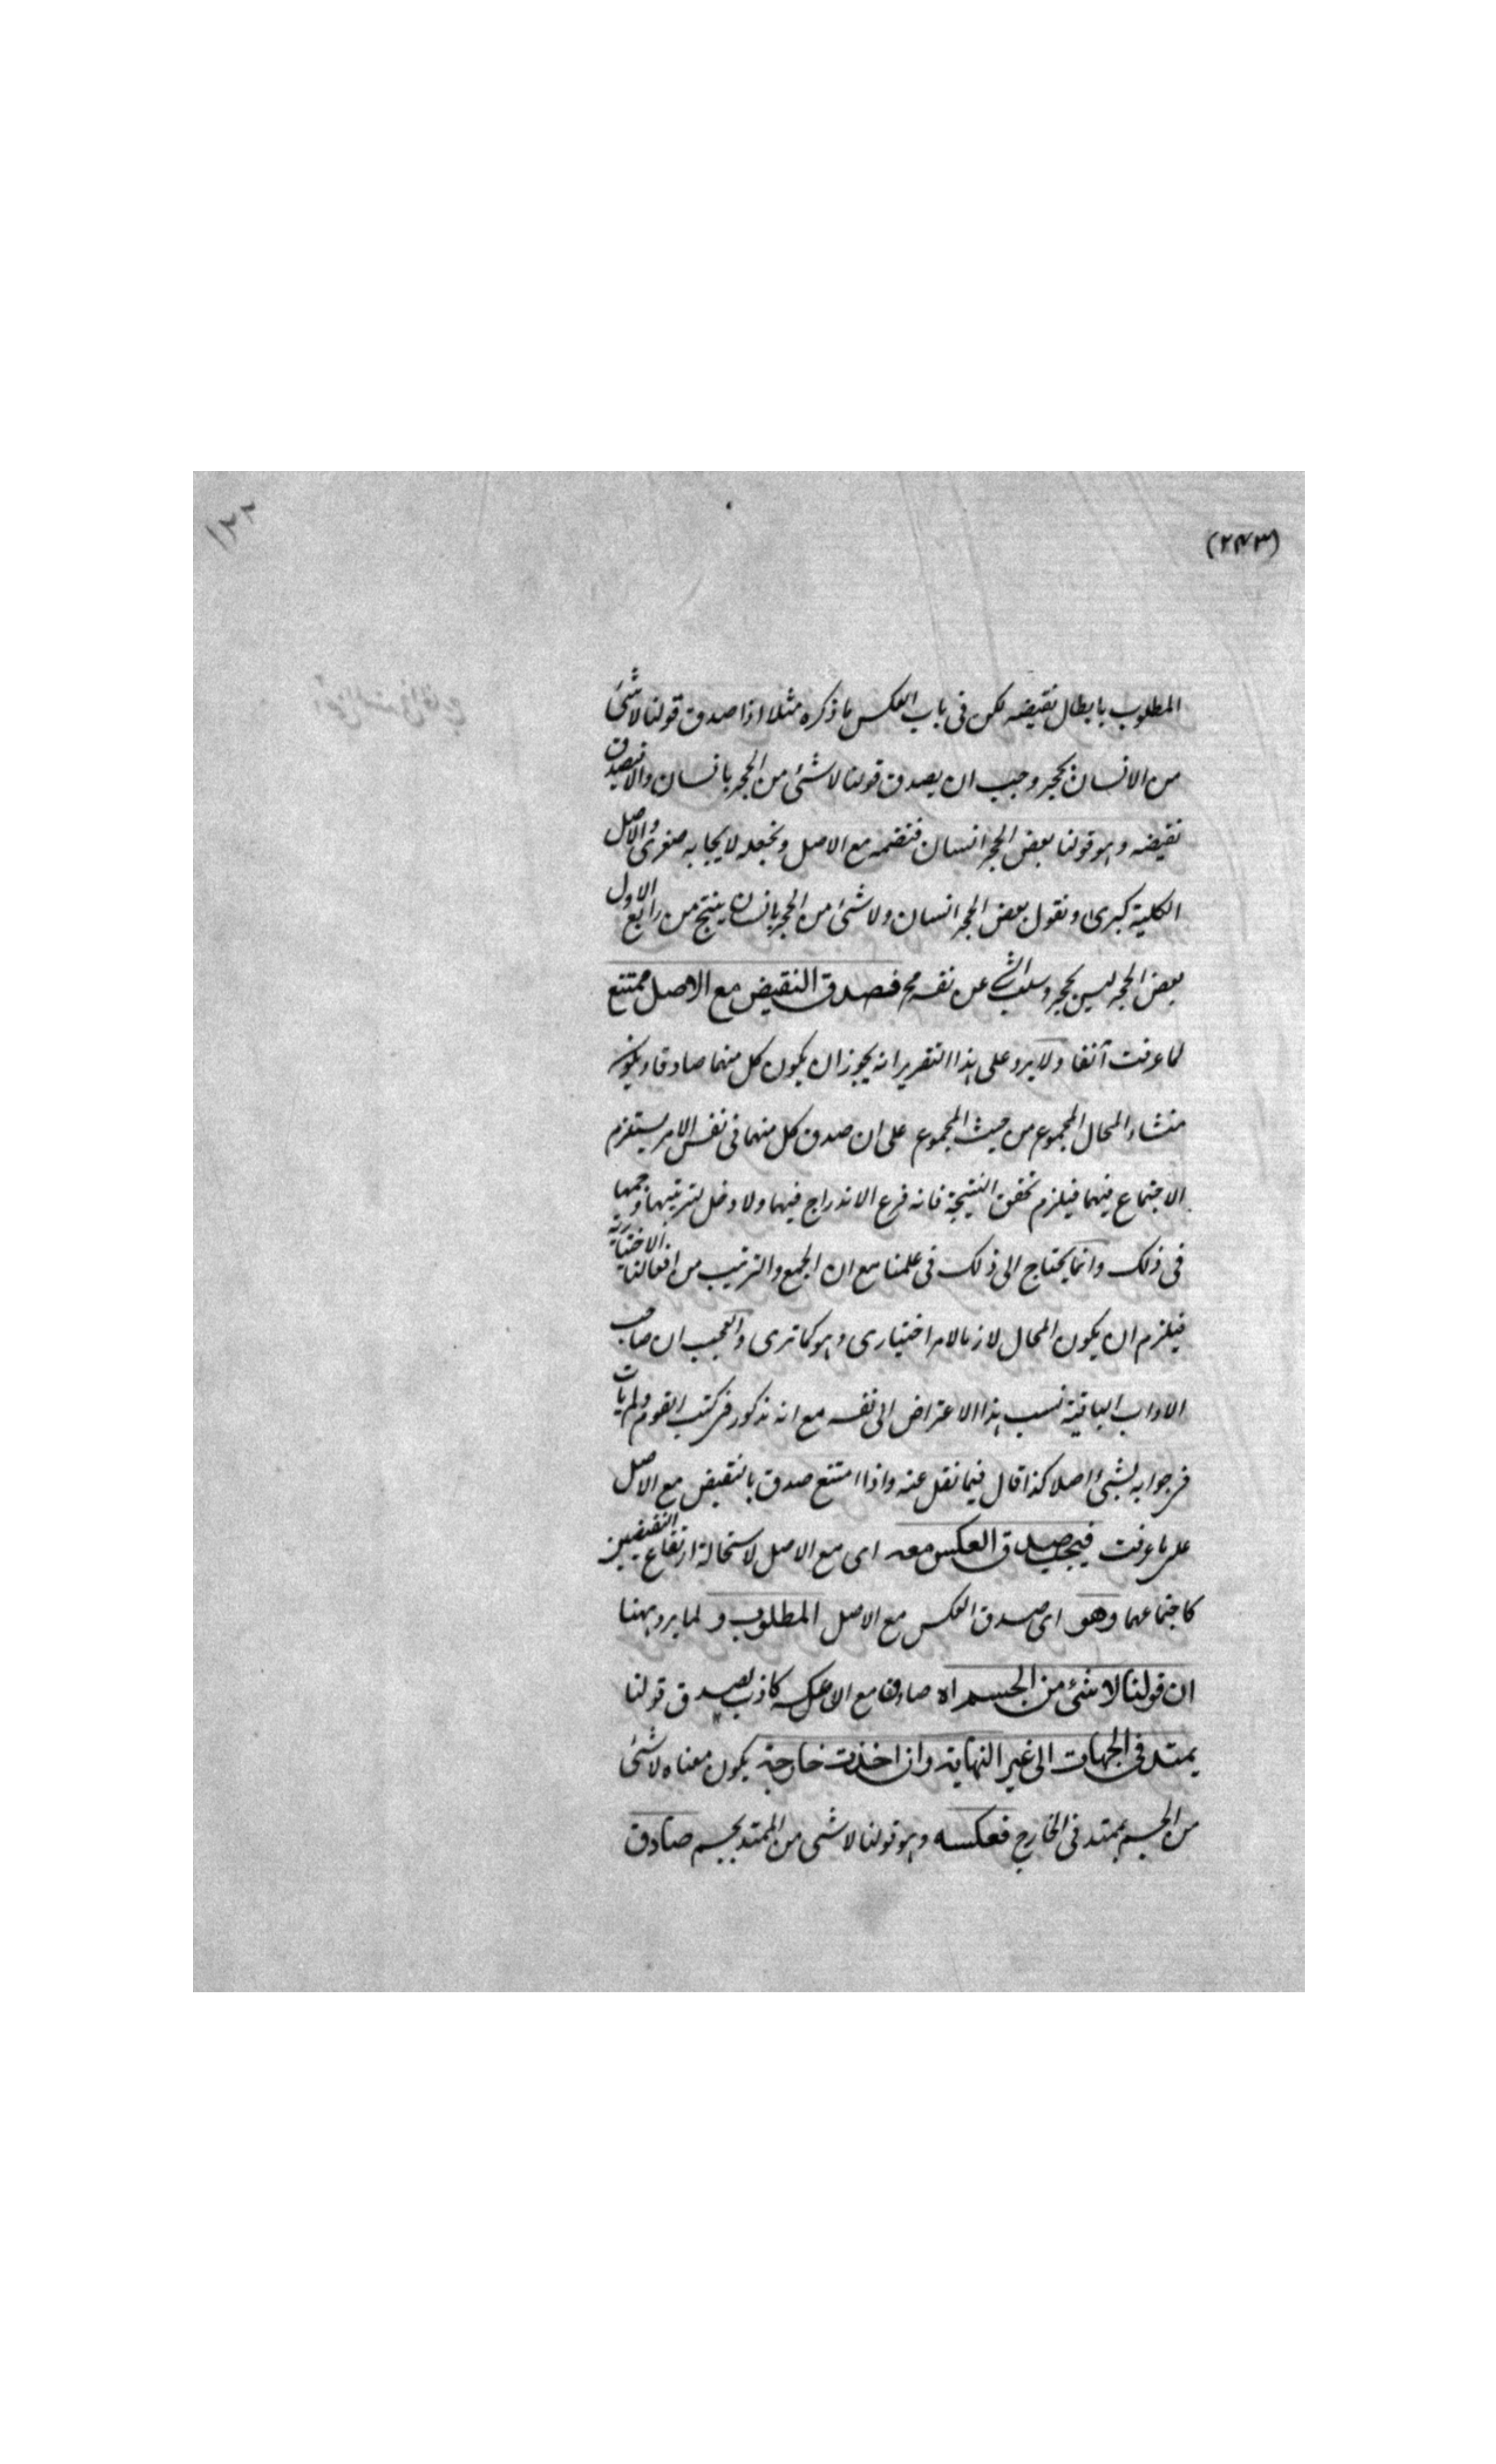 (٢٤٣)
١٢٢
المطلوب بابطال نقيضه لكن فى باب العكس ما ذكره مثلا اذا صدق قولنا لا شئ
من الانسان بحجر وجب ان يصدق قولنا لا شئ من الحجر بانسان والا فيصدق
نقيضه وهو قولنا بعض الحجر انسان فنضمه مع الاصل ونجعله لايجابه صغرى والاصل
الكلية كبرى ونقول بعض الحجر انسان ولا شئ من الحجر بانسان ينتج من رابع الاول
بعض الحجر ليس بحجر وسلب الشئ عن نفسه مح فصدق النقيض مع الاصل ممتنع
لما عرفت آنفا ولا يرد على هذا التقرير انه يجوز ان يكون كل منهما صادقا ويكون
منشاء المحال المجموع من حيث المجموع على ان صدق كل منهما فى نفس الامر يستلزم
الاجتماع فيهما فيلزم تحقق النتيجة فانه فرع الاندراج فيهما ولا دخل لترتيبهما وجمعها
فى ذلك وانما يحتاج الى ذلك فى علمنا مع ان الجمع والترتيب من افعالنا الاختيارية
فيلزم ان يكون المحال لازما لامر اختيارى وهو كما ترى والعجب ان صاحب
الاداب الباقية نسب هذا الاعتراض الى نفسه مع انه مذكور فى كتب القوم ولم يات
فى جوابه بشئ اصلا كذا قال فيما نقل عنه واذا امتنع صدق بالنقيض مع الاصل
على ما عرفت فيجب صدق العكس معه اى مع الاصل لاستحالة ارتفاع النقيضين
كاجتماعهما وهو اى صدق العكس مع الاصل المطلوب و لما يرد ههنا
ان قولنا لا شئ من الجسم اه صادق مع ان عكسه كاذب لصدق قولنا
يمتد فى الجهات الى غير النهاية وان اخذت خارجية يكون معناه لا شئ
من الجسم بممتد فى الخارج فعكسه وهو قولنا لا شى من الممتد بجسم صادق